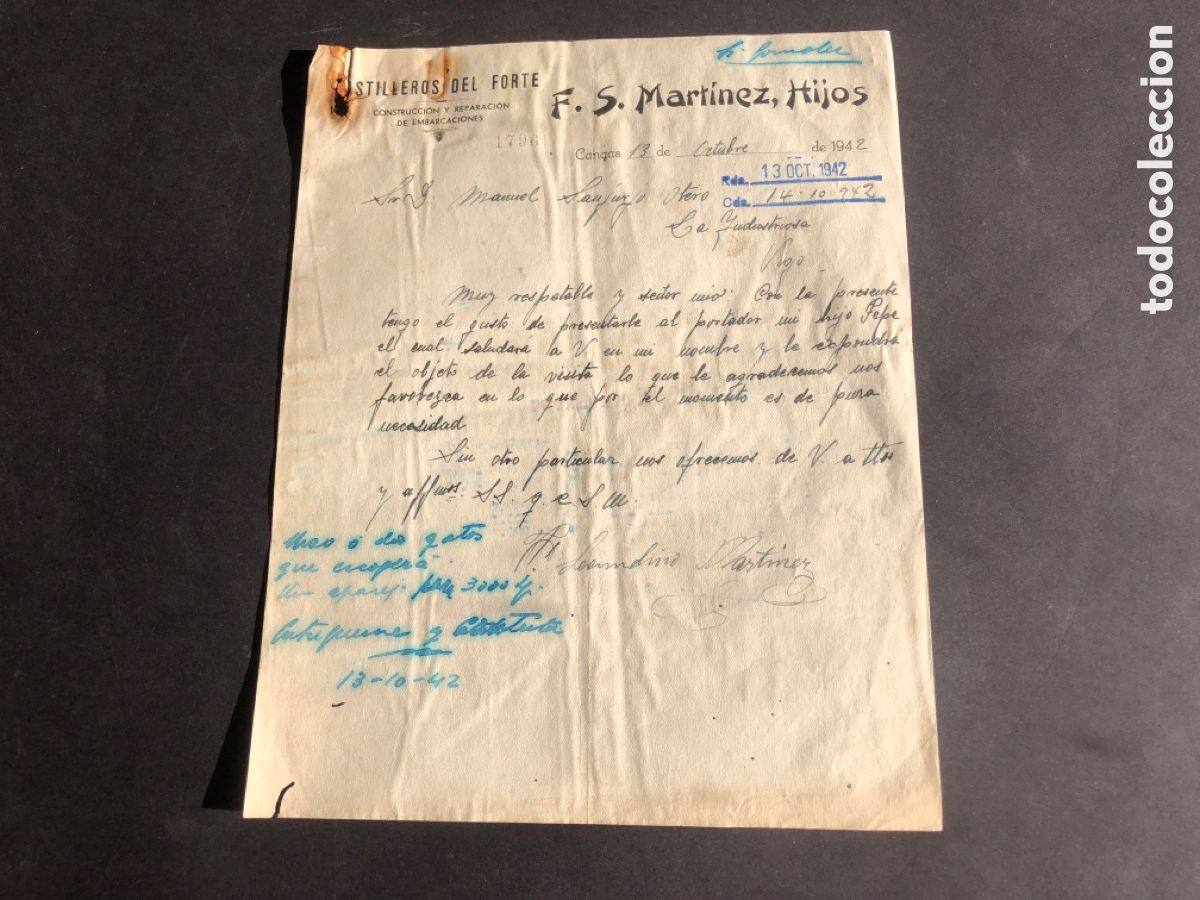 STILLEROS DEL FORTE
CONSTRUCCION Y REPARACIÓN
DE EMBARCACIONES
F. S. Martínez, Hijos
1796
Cangas 13 de Octubre de 1942
Rda. 13 OCT. 1942
Cda. 14-10-942
Sr D. Manuel Sanjurjo Otero
La Industriosa
Vigo
Muy respetable y señor mio: Con la presente
tengo el gusto de presentarle al portador mi hijo Pepe
el cual saludara a V. en mi nombre y le expondra
el objeto de la visita lo que le agradecemos nos
favorezca en lo que por tel momento es de pura
necesidad
Sin otro particular nos ofrecemos de V. a ttos
y affmos. S.S. q. e. S. M.
Secundino Martinez
Uno ó dos gatos
que escogerá
Un aparejo para 3000
y
13-10-42
todocoleccion